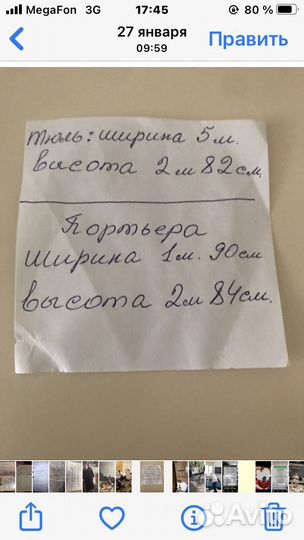 MegaFon 3G 17:45 80 %
27 января
09:59
Править
тюль: ширина 5 м.
высота 2 м 82 см.
Портьера
ширина 1 м. 90 см
высота 2 м 84 см.
Avito